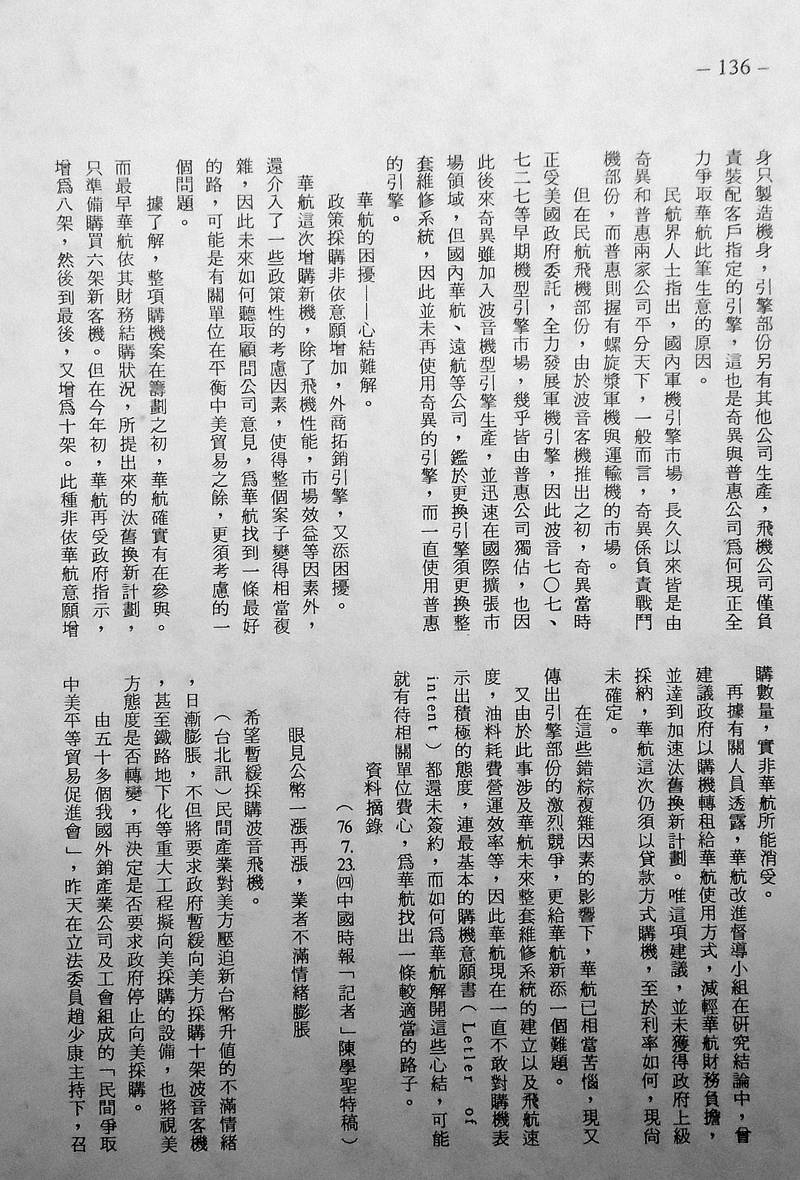 – 136 –
身只製造機身，引擎部份另有其他公司生產，飛機公司僅負
責裝配客戶指定的引擎，這也是奇異與普惠公司爲何現正全
力爭取華航此筆生意的原因。
民航界人士指出，國內軍機引擎市場，長久以來皆是由
奇異和普惠兩家公司平分天下，一般而言，奇異係負責戰鬥
機部份，而普惠則握有螺旋槳軍機與運輸機的市場。
但在民航飛機部份，由於波音客機推出之初，奇異當時
正受美國政府委託，全力發展軍機引擎，因此波音七〇七、
七二七等早期機型引擎市場，幾乎皆由普惠公司獨佔，也因
此後來奇異雖加入波音機型引擎生產，並迅速在國際擴張市
場領域，但國內華航、遠航等公司，鑑於更換引擎須更換整
套維修系統，因此並未再使用奇異的引擎，而一直使用普惠
的引擎。
華航的困擾——心結難解。
政策採購非依意願增加，外商拓銷引擎，又添困擾。
華航這次增購新機，除了飛機性能，市場效益等因素外，
還介入了一些政策性的考慮因素，使得整個案子變得相當複
雜，因此未來如何聽取顧問公司意見，爲華航找到一條最好
的路，可能是有關單位在平衡中美貿易之餘，更須考慮的一
個問題。
據了解，整項購機案在籌劃之初，華航確實有在參與。
而最早華航依其財務結購狀況，所提出來的汰舊換新計劃，
只準備購買六架新客機。但在今年初，華航再受政府指示，
增爲八架，然後到最後，又增爲十架。此種非依華航意願增
購數量，實非華航所能消受。
再據有關人員透露，華航改進督導小組在研究結論中，曾
建議政府以購機轉租給華航使用方式，減輕華航財務負擔，
並達到加速汰舊換新計劃。唯這項建議，並未獲得政府上級
採納，華航這次仍須以貸款方式購機，至於利率如何，現尙
未確定。
在這些錯綜複雜因素的影響下，華航已相當苦惱，現又
傳出引擎部份的激烈競爭，更給華航新添一個難題。
又由於此事涉及華航未來整套維修系統的建立以及飛航速
度，油料耗費營運效率等，因此華航現在一直不敢對購機表
示出積極的態度，連最基本的購機意願書（Letler of
intent）都還未簽約，而如何爲華航解開這些心結，可能
就有待相關單位費心，爲華航找出一條較適當的路子。
資料摘錄
（76.7.23.㈣中國時報「記者」陳學聖特稿）
眼見公幣一漲再漲，業者不滿情緒膨脹
希望暫緩採購波音飛機。
（台北訊）民間產業對美方壓迫新台幣升值的不滿情緒
，日漸膨脹，不但將要求政府暫緩向美方採購十架波音客機
，甚至鐵路地下化等重大工程擬向美採購的設備，也將視美
方態度是否轉變，再決定是否要求政府停止向美採購。
由五十多個我國外銷產業公司及工會組成的「民間爭取
中美平等貿易促進會」，昨天在立法委員趙少康主持下，召